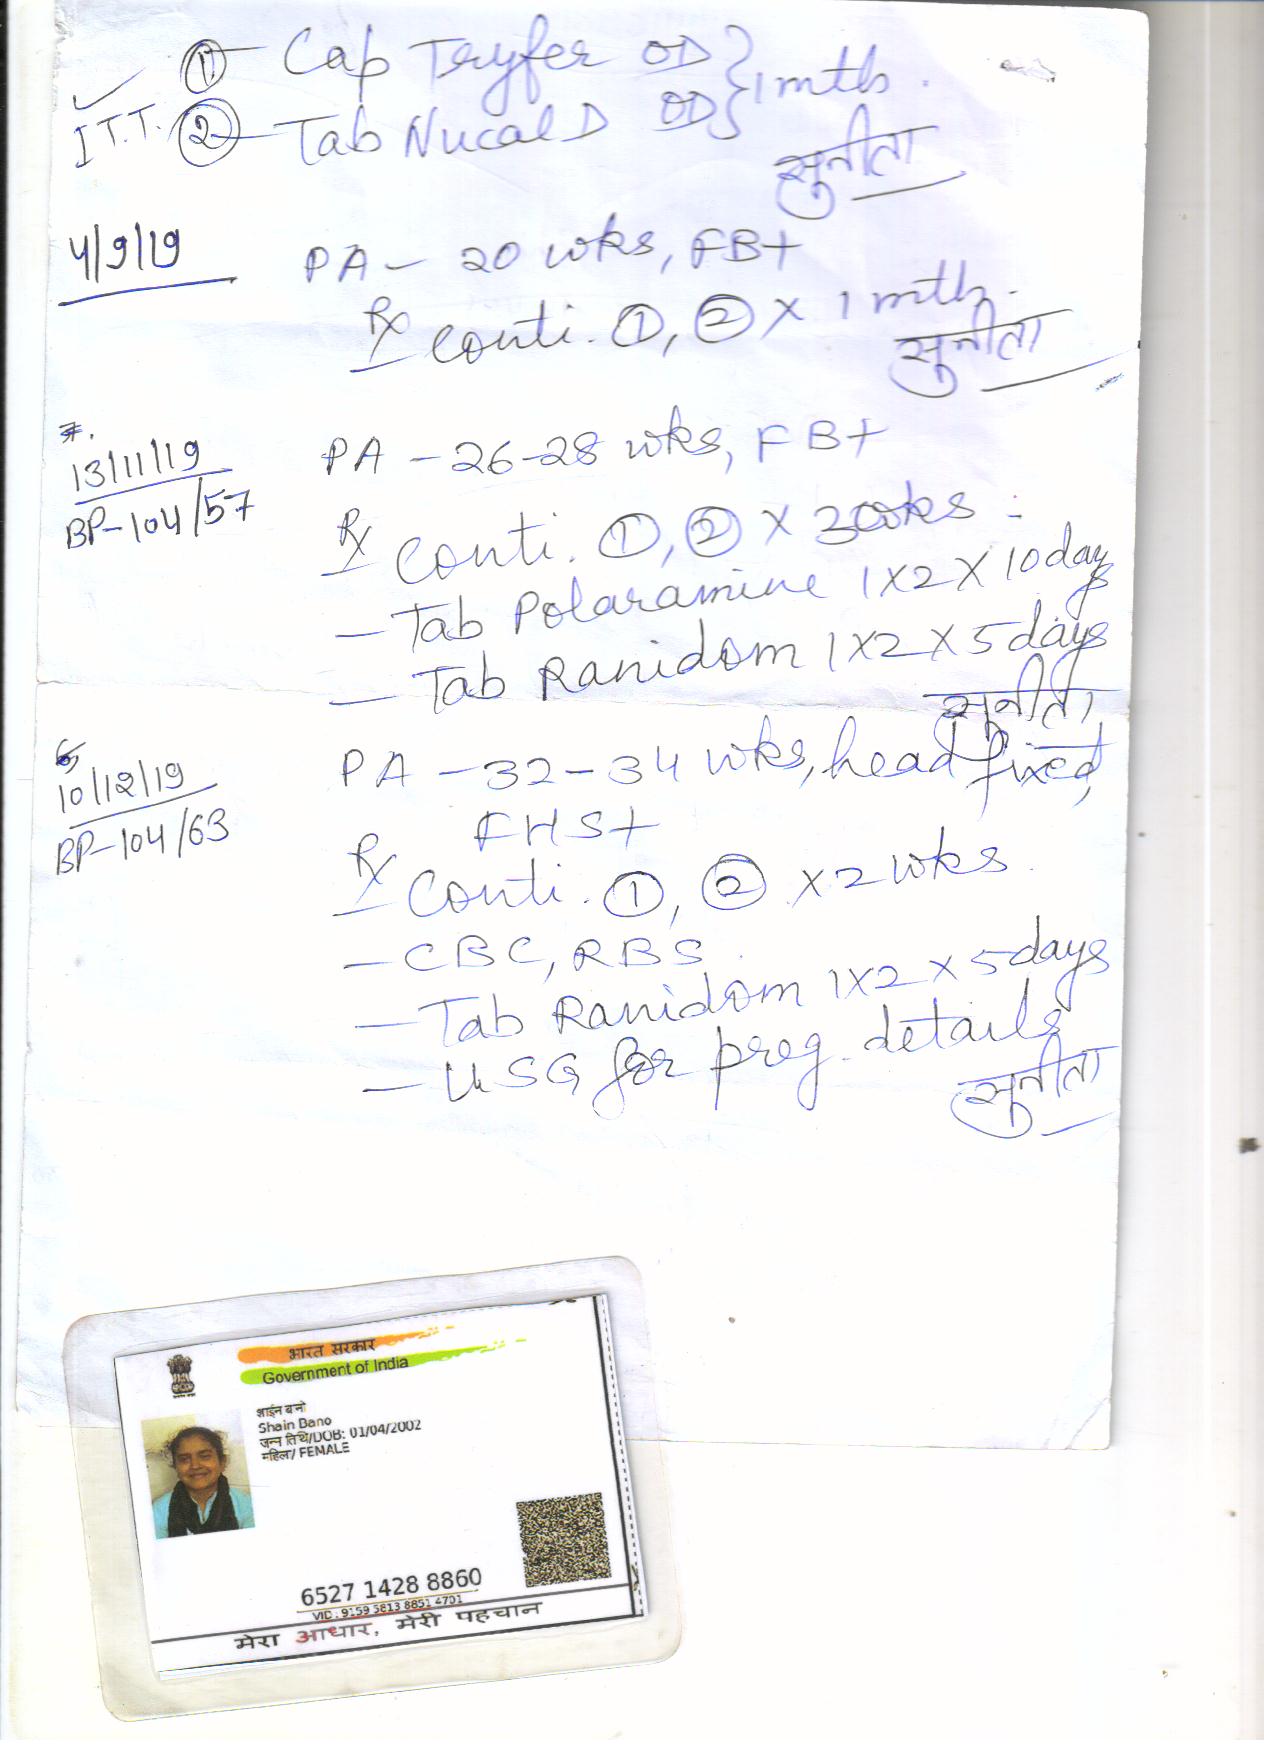 ① Cap Tryfer OD } 1 mth.
I T.T. ② Tab Nucal D OD
सुनीता
4/9/19
PA - 20 wks, FB+
Rx conti. ①, ② x 1 mth.
सुनीता
13/11/19
BP-104/57
PA - 26-28 wks, FB+
Rx conti. ①, ② x 3 wks
- Tab Polaramine 1x2 x 10 days
- Tab Ranidom 1x2 x 5 days
सुनीता
10/12/19
BP-104/63
PA - 32-34 wks, head fixed,
FHS+
Rx conti. ①, ② x 2 wks.
- CBC, RBS
- Tab Ranidom 1x2 x 5 days
- USG for preg. details
सुनीता
भारत सरकार
Government of India
शाईन बनो
Shain Bano
जन्म तिथि/DOB: 01/04/2002
महिला/ FEMALE
6527 1428 8860
VID : 9159 5813 8851 4701
मेरा आधार, मेरी पहचान